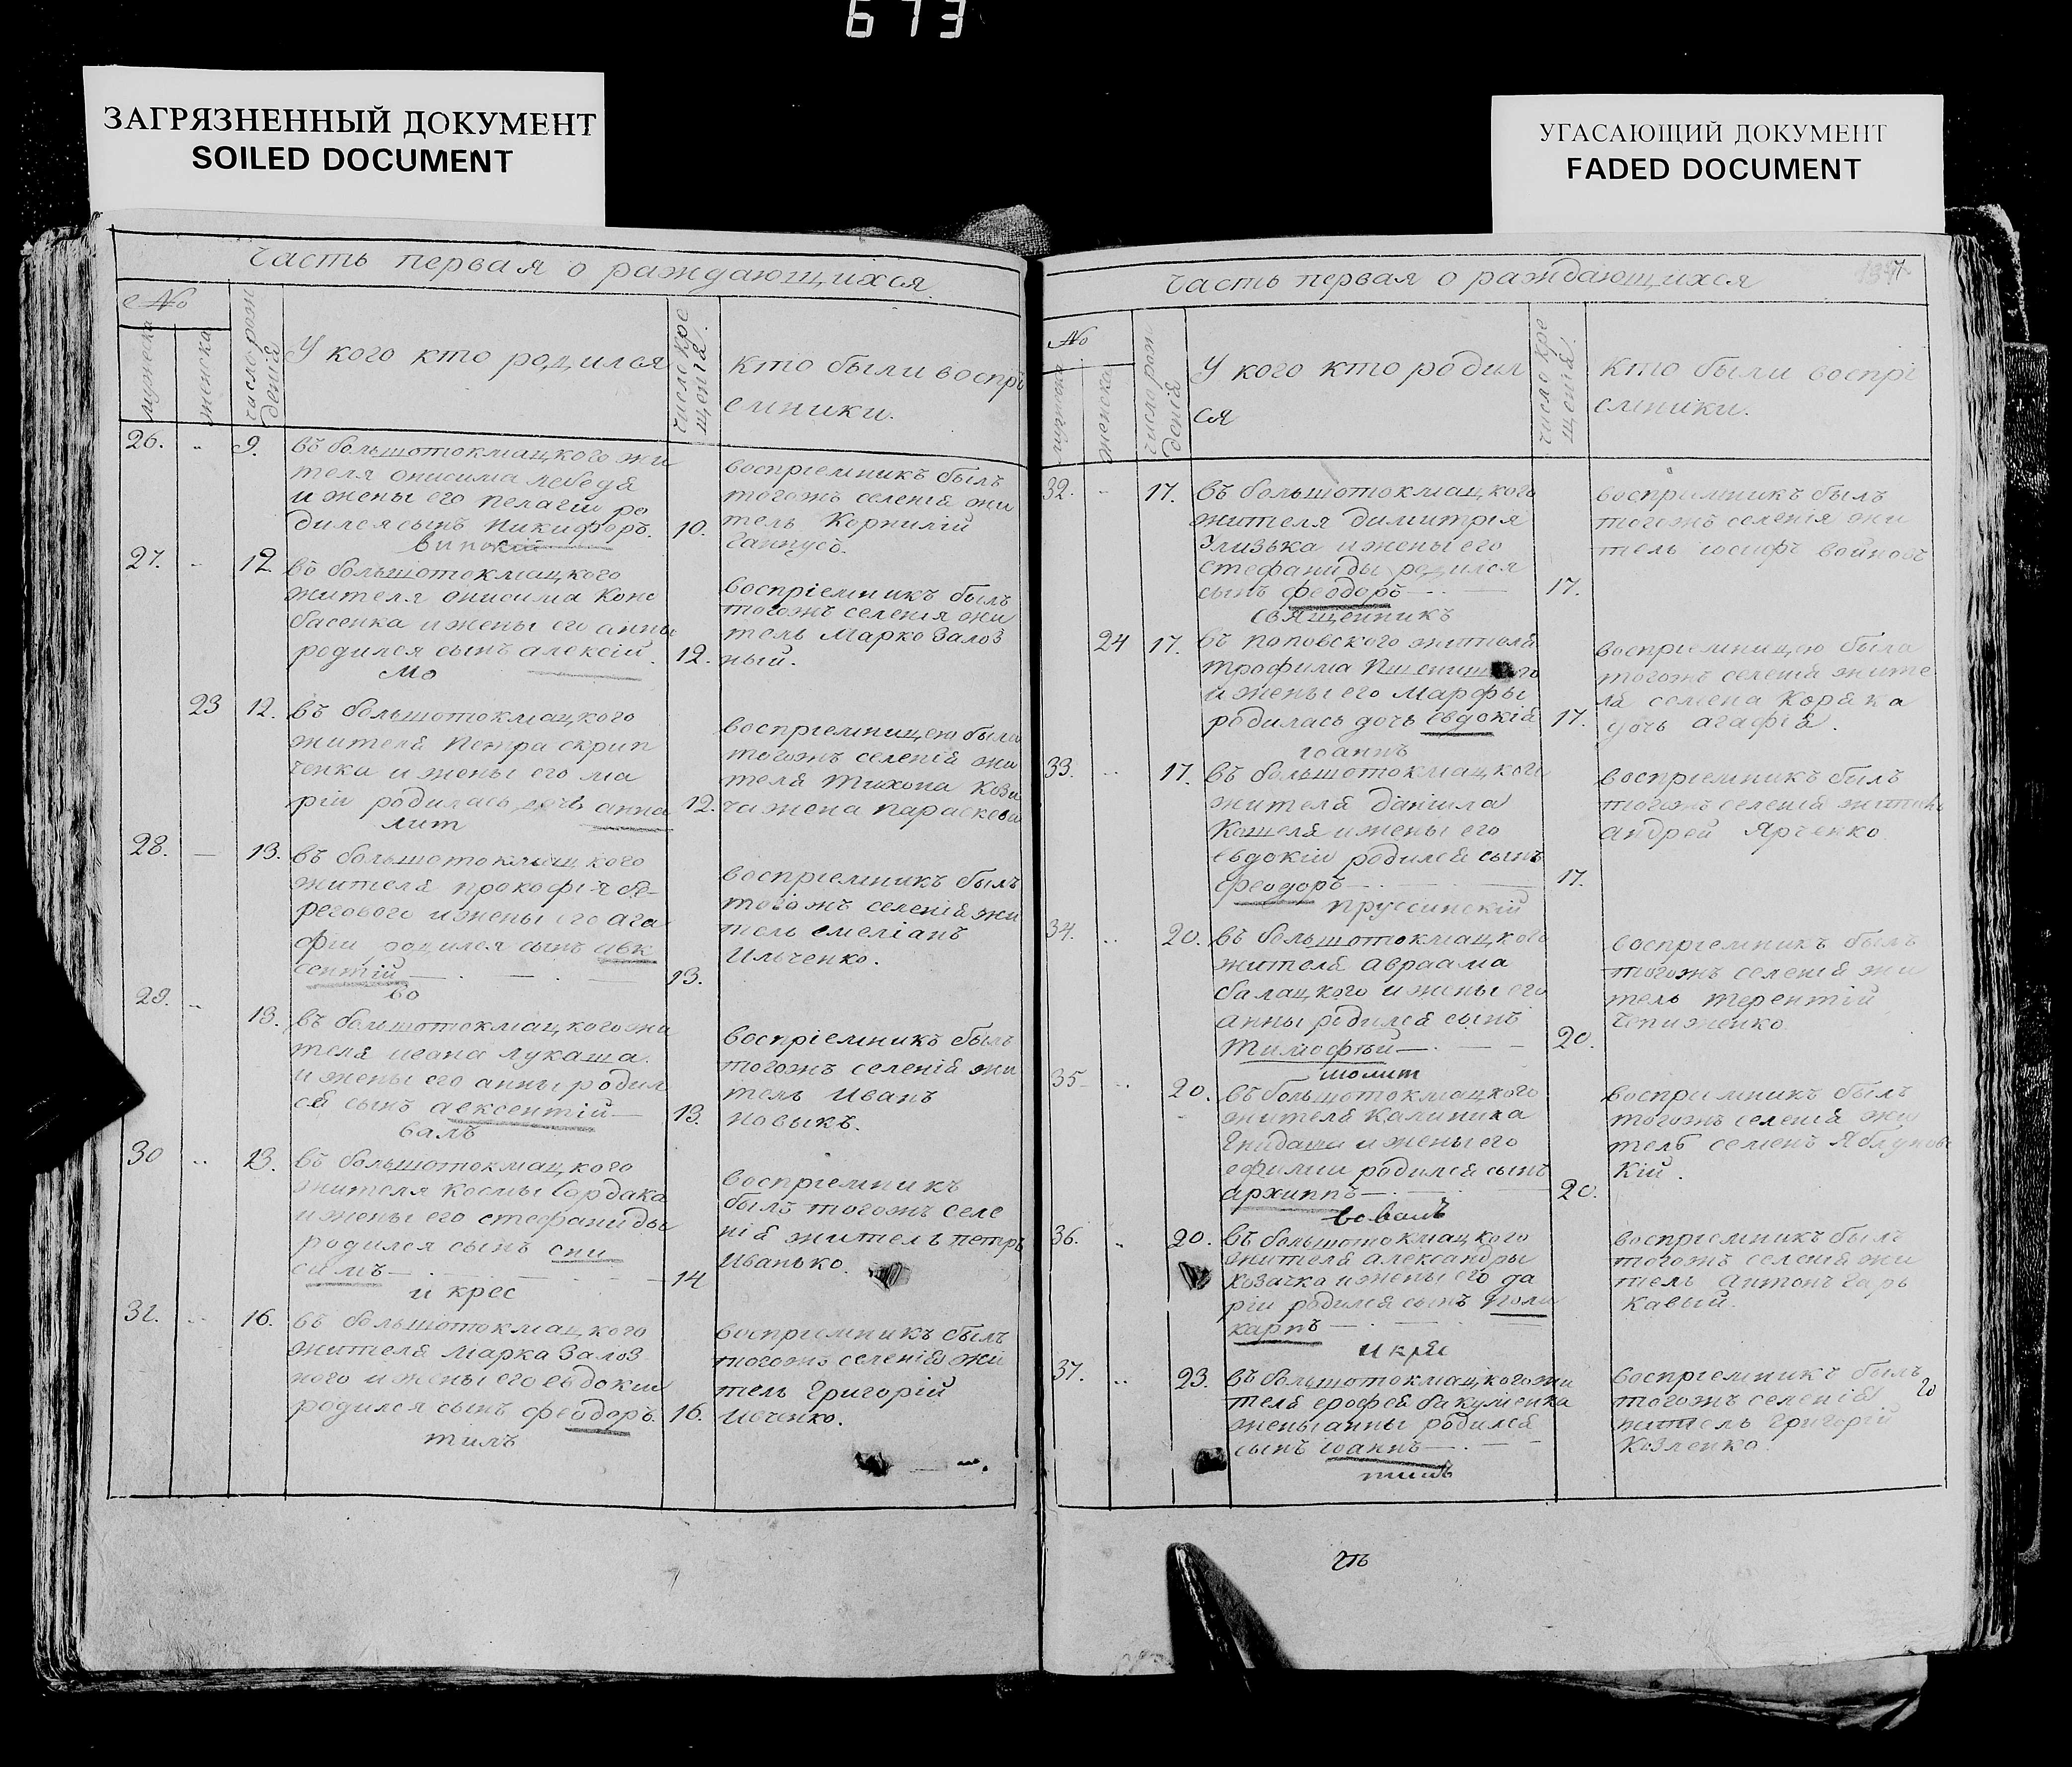 673
ЗАГРЯЗНЕННЫЙ ДОКУМЕНТ
SOILED DOCUMENT
УГАСАЮЩИЙ ДОКУМЕНТ
FADED DOCUMENT
Часть первая о раждающихся
№
мужеска
женска
число рож
денія
У кого кто родился
число кре
щенія.
кто были воспрі
емники.
26. 9. въ большотокмацкого жи
теля онисима лебедя
и жены его пелагіи ро
дился сынъ никифоръ. 10.
воспріемникъ былъ
тогожъ селенія жи
тель Корнилій
27. 12. въ большотокмацкого
жителя онисима Коно
басенка и жены его анны
родился сынъ алексій. 12.
мо
воспріемникъ былъ
тогожъ селенія жи
тель марко Залоз
ный.
23 12. въ большотокмацкого
жителя петра скрип
ченка и жены его ма
ріи родилась дочь анна 12.
лит
воспріемницею была
тогожъ селенія жи
теля тихона Коза
ча жена параскева
28. 13. въ большотокмацкого
жителя прокофія бе-
регового и жены его ага
фіи родился сынъ авк
сентій 13.
во
воспріемникъ былъ
тогожъ селенія жи
тель емеліанъ
Ильченко.
29. 13. въ большотокмацкого жи
теля ивана лукаша
и жены его анны родил
ся сынъ авксентій 13.
валъ
воспріемникъ былъ
тогожъ селенія жи
тель иванъ
новыкъ.
30 13. въ большотокмацкого
жителя космы Сердака
и жены его стефаниды
родился сынъ они
симъ 14
и крес
воспріемникъ
былъ тогожъ селе
нія житель петръ
Иванько.
31. 16. въ большотокмацкого
жителя марка Залоз
ного и жены его евдокіи
родился сынъ феодоръ. 16.
тилъ
воспріемникъ былъ
тогожъ селенія жи
тель Григорій
Ивченко.
Часть первая о раждающихся
№
женска
число рож
денія
У кого кто родил
ся
число кре
щенія.
Кто были воспрі
емники.
32. 17. въ большотокмацкого
жителя димитрія
и жены его
стефаниды родился
сынъ феодоръ 17.
священникъ
воспріемникъ былъ
тогожъ селенія жи
тель іосифъ войновъ
24 17. въ поповского жителя
трофима
и жены его марфы
родилась дочь евдокія 17.
іоаннъ
воспріемницею была
тогожъ селенія жите
ля семена Коряка
дочь агафія.
33. 17. въ большотокмацкого
жителя даніила
Кошеля и жены его
евдокіи родился сынъ
феодоръ 17.
пруссинскій
воспріемникъ былъ
тогожъ селенія житель
андрей Ярченко.
34. 20. въ большотокмацкого
жителя авраама
балацкого и жены его
анны родился сынъ
тимофей 20.
молит
воспріемникъ былъ
тогожъ селенія жи
тель терентій
Чепиженко.
35 20. въ большотокмацкого
жителя калиника
Гнидаша и жены его
ефиміи родился сынъ
архиппъ 20.
вовалъ
воспріемникъ былъ
тогожъ селенія жи
тель семенъ Яблунов
кій.
36. 20. въ большотокмацкого
жителя александры
козачка и жены его да
ріи родился сынъ поли
карпъ
и крес
воспріемникъ былъ
тогожъ селенія жи
тель антонъ Гарь
кавый.
37. 23. въ большотокмацкого жи
теля ерофея бакуменка
жены анны родился
сынъ іоаннъ
тилъ
воспріемникъ былъ
тогожъ селенія
житель Григорій
Козленко.